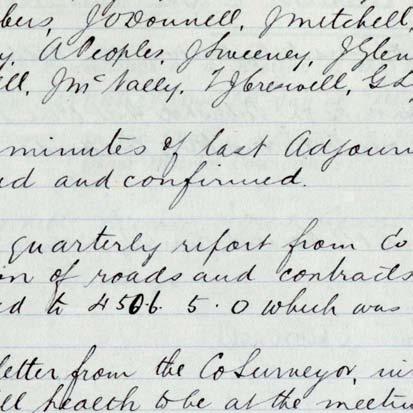 bers, J O'Donnell, J Mitchell,
y, A Peoples, J Sweeney, J Glen
ell, J McNally, T J Creswell, G
minutes of last Adjour
ed and confirmed.
quarterly report from Co
on of roads and contracts
ed to 4506. 5. 0 which was
letter from the Co Surveyor, in
ll health to be at the meetin